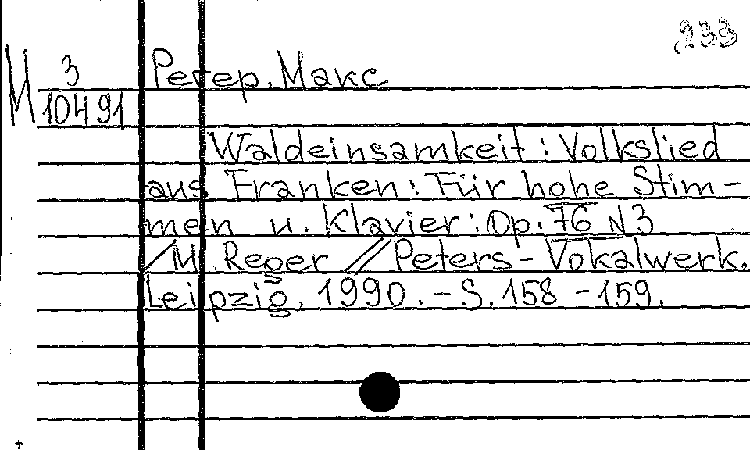 233
М 3 Регер, Макс
10491
Waldeinsamkeit : Volkslied
aus Franken : Für hohe Stim-
men u. Klavier : Op. 76 N3
/ M. Reger // Peters - Vokalwerk.
Leipzig, 1990. - S. 158 - 159.